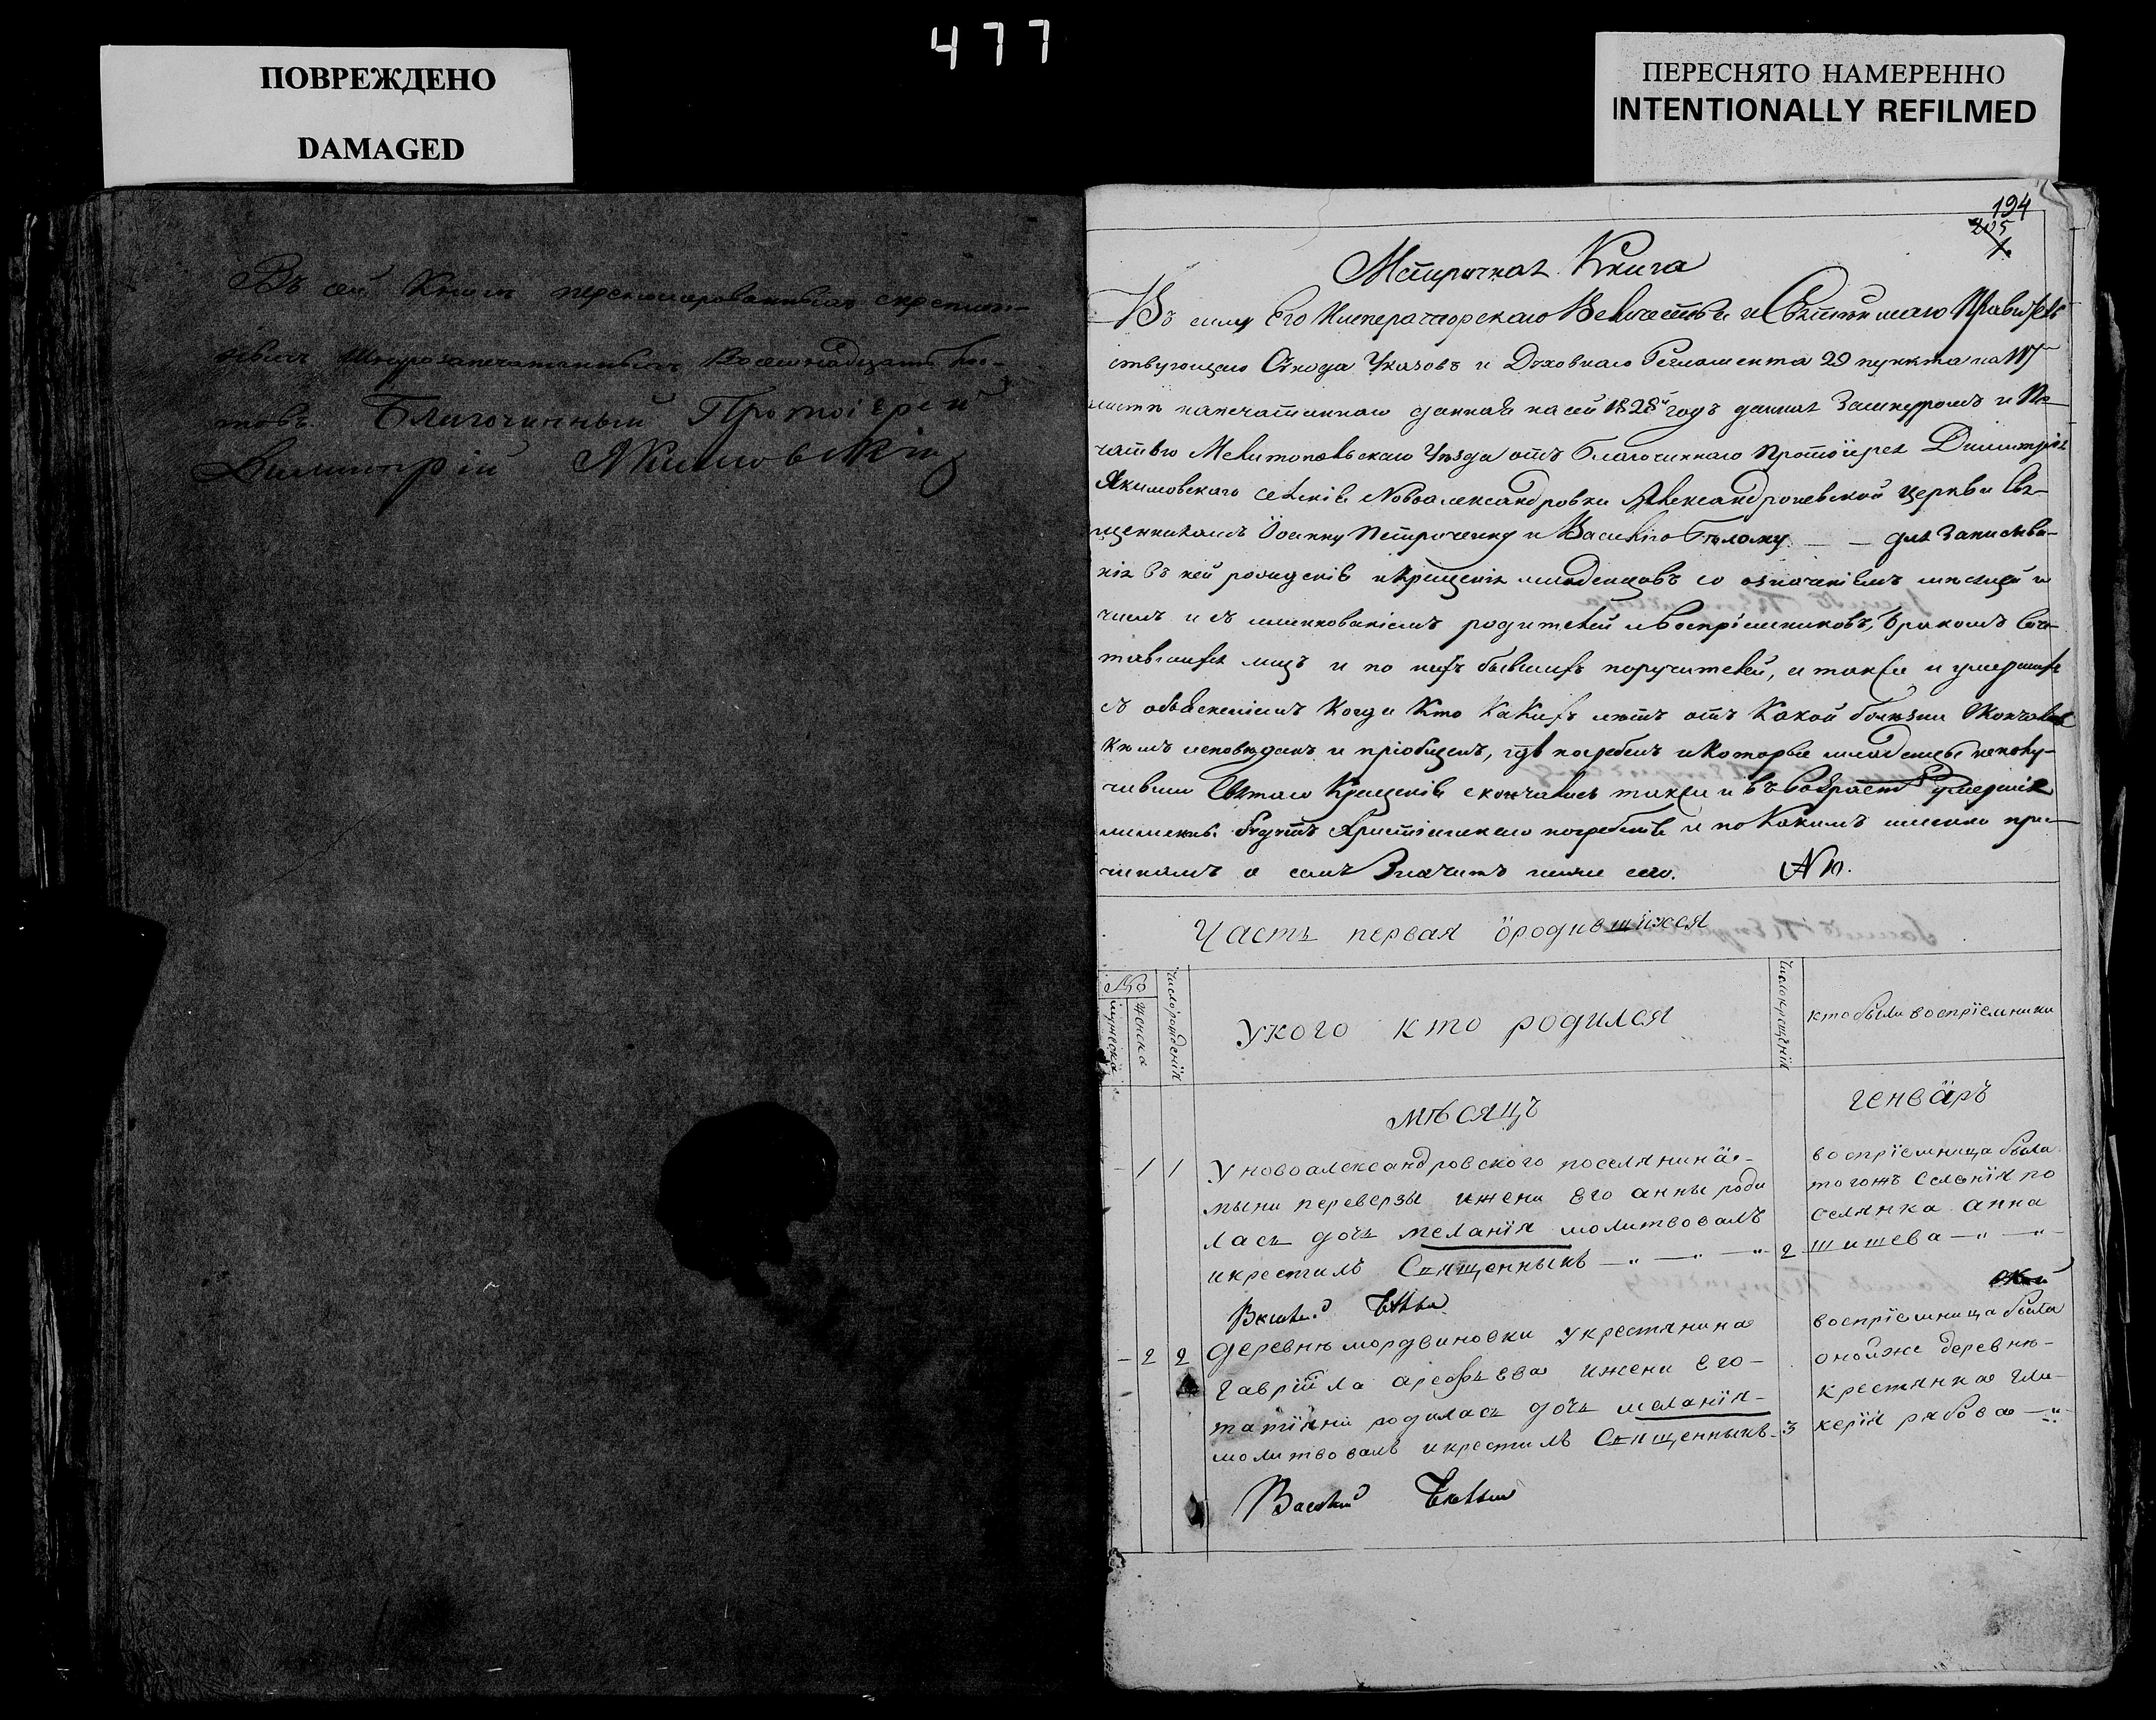 477
ПОВРЕЖДЕНО
DAMAGED
ПЕРЕСНЯТО НАМЕРЕННО
INTENTIONALLY REFILMED
Въ сей Книги перенумерованныхъ скрепленныхъ
Шнурозапечатанныхъ Восемнадцать
Благочинный Протоіерей
Димитрій Якимовскій
194
205
Метиричная Книга
Въ силу Его Императорскаго Величества и Святейшаго Правитель
ствующаго Сѵнода Указовъ и Духовнаго Регламента 29 пункта на
листе напечатаннаго данная на сей 1828й годъ данная За шнуромъ и Пе
чатью Мелитопольскаго Уезда отъ благочиннаго протоіерея Димитрія
Якимовскаго селенія Новоалександровки Александроневской церкви Свя
щенникамъ Іоанну Петроченку и Василію Белому для Записыва
нія въ ней рожденія и Крещенія младенцовъ со означеніемъ месяцей и
чиселъ и съ именованіемъ родителей и Воспріемниковъ, бракомъ Соче
тавшихся лицъ и по нихъ бывшихъ поручителей, а также и умершихъ
съ объясненіемъ когда Кто какихъ летъ отъ какой болезни скончался
кемъ исповеданъ и пріобщенъ, где погребенъ и которые младенцы неполу
чивши Святаго Крещенія скончались также и въ возрасте умершіе
лишены будутъ христіанскаго погребенія и по какимъ именно при
чинамъ о семъ Значитъ ниже сего. № 10.
Часть первая ородившихся
мужеска
женска
число рожденія
укого кто родился
число крещенія
кто были воспріемники
мѣсяцъ
генваръ
1 1 у новоалександровского поселянина
мыни переверзы ижени его анны роди
лась дочь меланія молитвовалъ
икрестилъ Священныкъ 2
воспріемница была
тогожъ Селенія по
селянка анна
шишева
Василий Белый
2 2 деревнѣ мордвиновки укрестянина
гавріила арефьева ижени его
татіяни родилась дочь меланія
молитвовалъ икрестилъ Священныкъ 3
воспріемница была
онойже деревнѣ
крестянка гли
керія рябова
Василий Белый